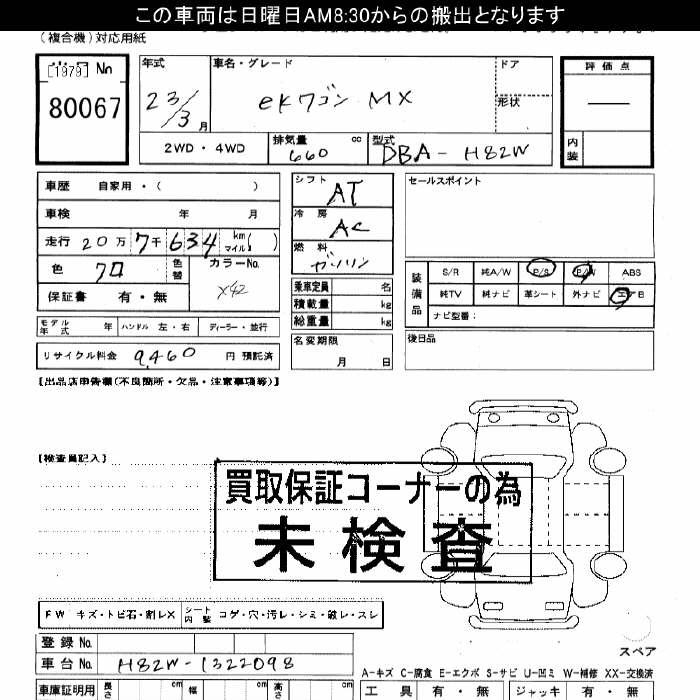 この車両は日曜日AM8:30からの搬出となります
(複合機)対応用紙
[1979] No
80067
年式 23/3 月
車名・グレード eKワゴン MX
ドア
形状
評価点
―
内装
2WD・4WD
排気量 660 cc
型式 DBA-H82W
車歴 自家用・( )
車検 年 月
走行 20万7千634 km マイル( )
色 クロ
色替
カラーNo. X42
保証書 有・無
モデル年式 年 ハンドル 左・右 ディーラー・並行
リサイクル料金 9,460 円 預託済
シフト AT
冷房 AC
燃料 ガソリン
乗車定員 名
積載量 kg
総重量 kg
名変期限 月 日
セールスポイント
装備品
S/R 純A/W P/S P/W ABS
純TV 純ナビ 革シート 外ナビ エアB
ナビ型番:
後日品
【出品店申告欄(不良箇所・欠品・注意事項等)】
【検査員記入】
買取保証コーナーの為
未検査
FW キズ・トビ石・割レX
シート内装 コゲ・穴・汚レ・シミ・破レ・スレ
登録No.
車台No. H82W-1322098
車庫証明用 長さ cm 幅 cm 高さ cm
スペア
A-キズ C-腐食 E-エクボ S-サビ U-凹ミ W-補修 XX-交換済
工具 有・無 ジャッキ 有・無